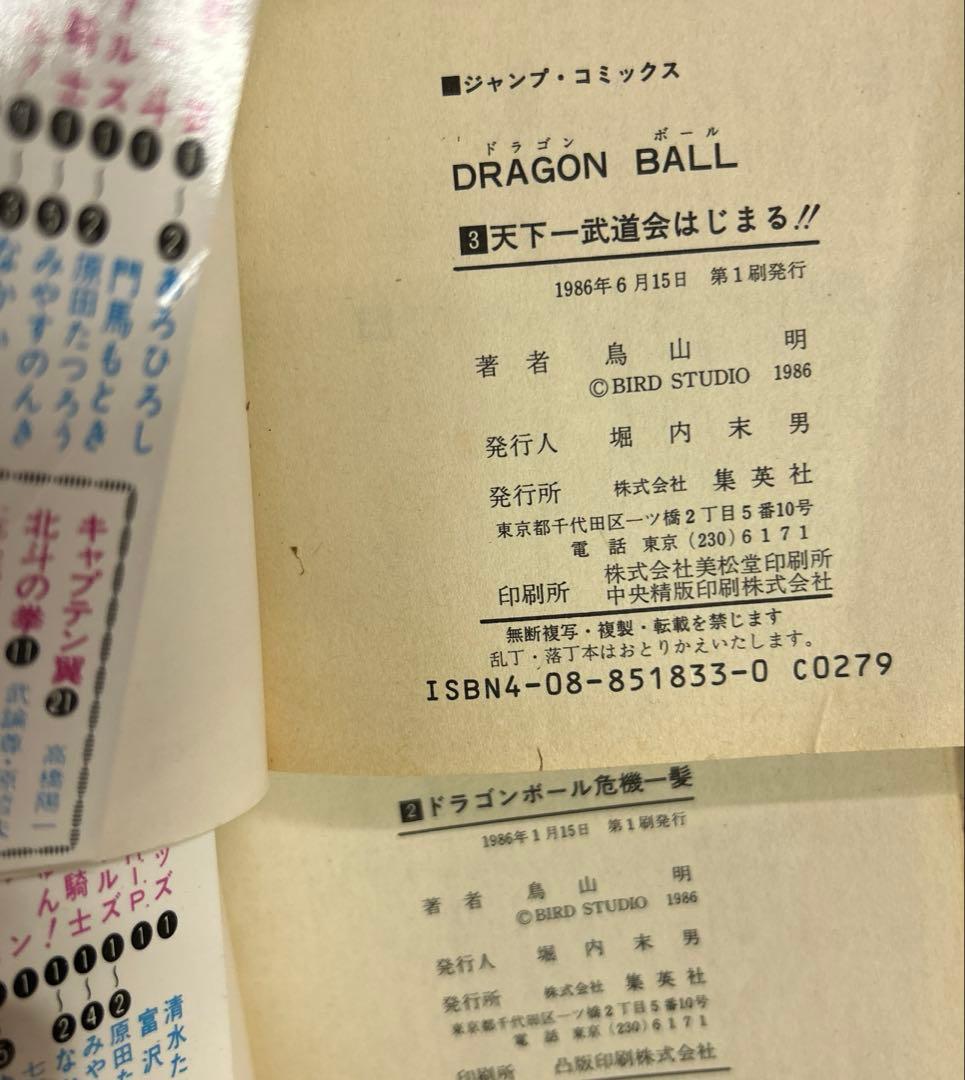 ■ジャンプ・コミックス
ドラゴン ボール
DRAGON BALL
3天下一武道会はじまる!!
1986年6月15日 第1刷発行
著者 鳥山 明
©BIRD STUDIO 1986
発行人 堀内末男
発行所 株式会社 集英社
東京都千代田区一ツ橋2丁目5番10号
電話 東京(230)6171
印刷所 株式会社美松堂印刷所
中央精版印刷株式会社
無断複写・複製・転載を禁じます
乱丁・落丁本はおとりかえいたします。
ISBN4-08-851833-0 C0279
2ドラゴンボール危機一髪
1986年1月15日 第1刷発行
著者 鳥山 明
©BIRD STUDIO 1986
発行人 堀内末男
発行所 株式会社 集英社
東京都千代田区一ツ橋2丁目5番10号
電話 東京(230)6171
印刷所 凸版印刷株式会社
1~2 あろひろし
門馬もとき
2 原田たつろう
みやすのんき
キャプテン翼 21 高橋陽一
北斗の拳 11 武論尊・原
清水た
富沢
2 原田た
4 みや
2 な